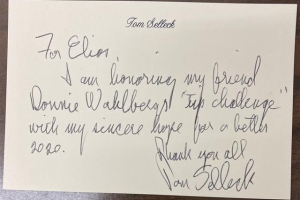 Tom Selleck
For Elios
I am honoring my friend
Donnie Wahlbergs "tip challenge"
with my sincere hope for a better
2020.
Thank you all
Tom Selleck